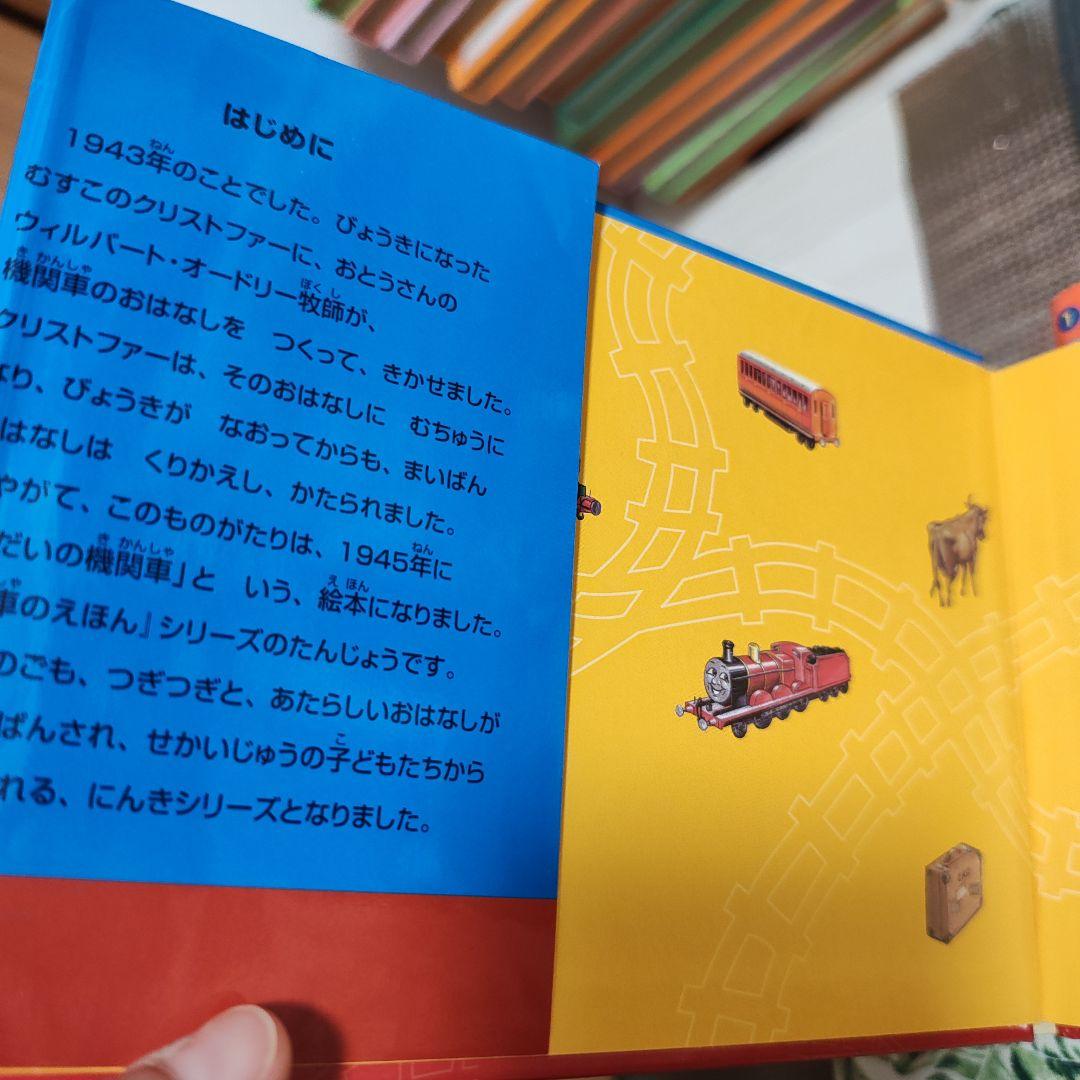 はじめに
1943年のことでした。びょうきになった
むすこのクリストファーに、おとうさんの
ウィルバート・オードリー牧師が、
機関車のおはなしを つくって、きかせました。
クリストファーは、そのおはなしに むちゅうに
なり、びょうきが なおってからも、まいばん
はなしは くりかえし、かたられました。
やがて、このものがたりは、1945年に
だいの機関車」と いう、絵本になりました。
車のえほん』シリーズのたんじょうです。
のごも、つぎつぎと、あたらしいおはなしが
ぱんされ、せかいじゅうの子どもたちから
れる、にんきシリーズとなりました。